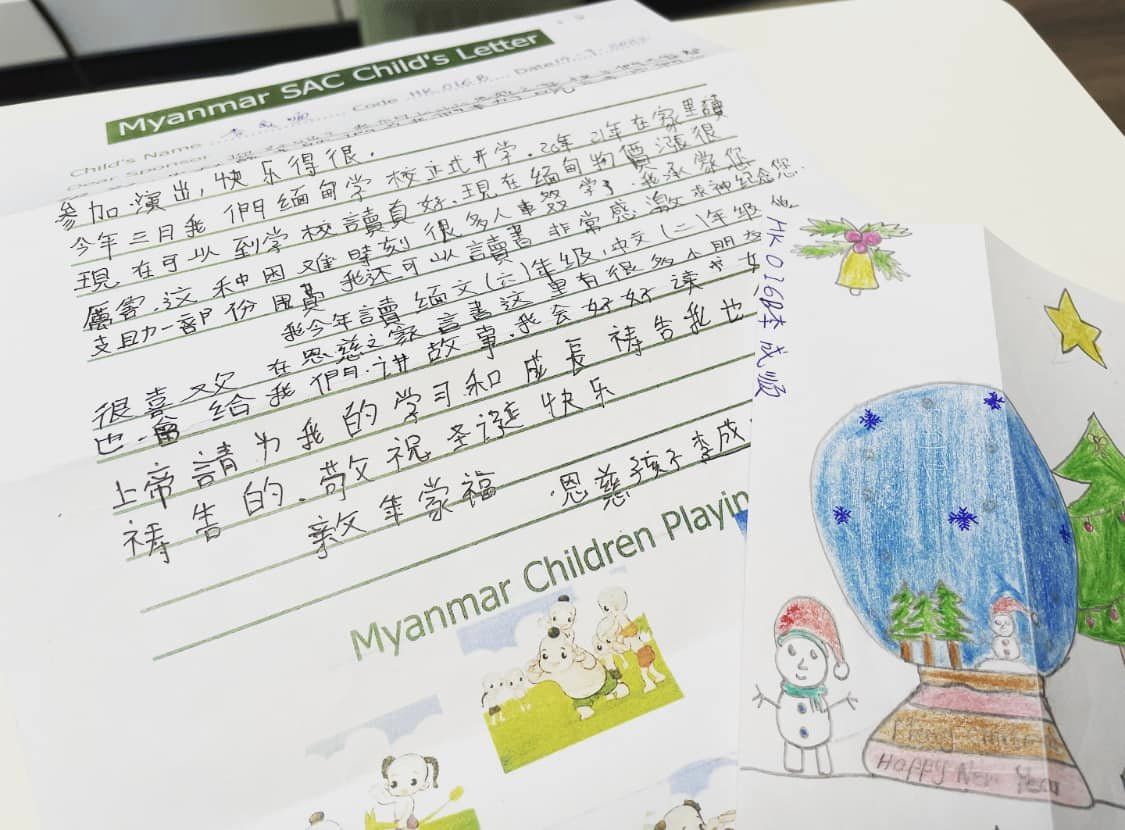 Myanmar SAC Child's Letter
Child's Name Code HK 016B Date
Dear Sponsor
参加演出，快乐得很．
今年三月我們緬甸学校正式开学．20年21年在家里讀
現在可以到学校讀真好．現在緬甸物價漲很
厲害．这种困难時刻很多人輟学了．我承蒙您
支助一部份用費我还可以讀書非常感激求神纪念您．
我今年讀緬文(六)年级，中文(二)年級
在恩慈之家這里有很多小朋友
很喜欢給我們讲故事．我会好好读书
上帝請为我的学习和成長祷告我也
祷告的．敬祝圣诞快乐
蒙福 恩慈孩子李成
Myanmar Children Playin
HK 016B李成顺
Happy New Year